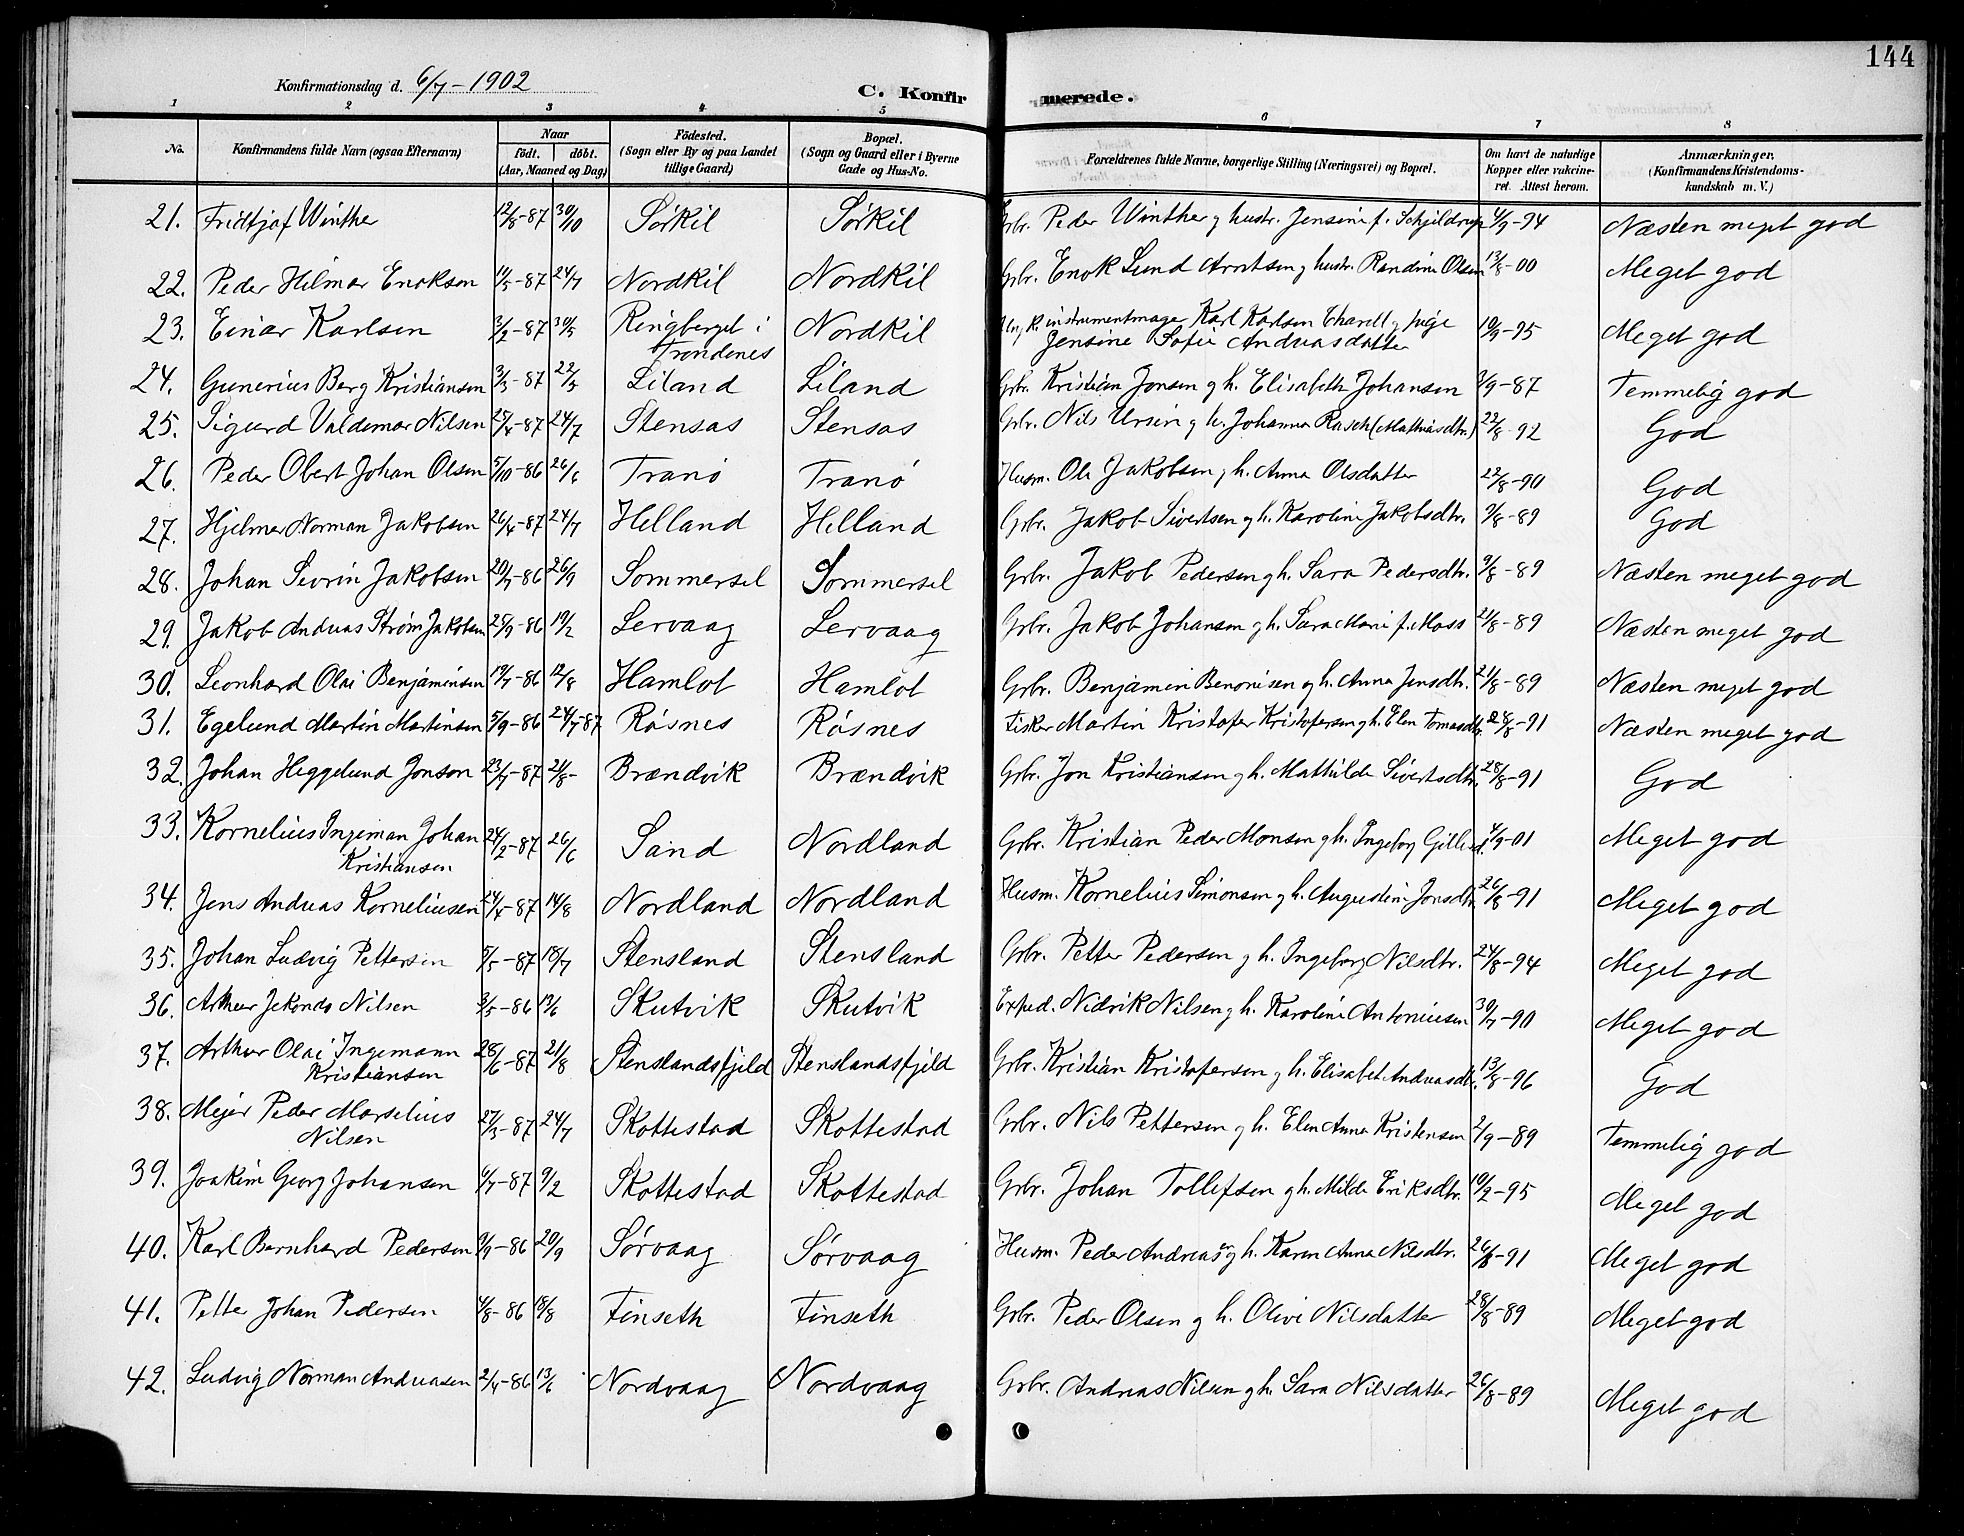 144
Konfirmationsdag d. 6/7-1902
C. Konfirmerede.
1 2 3 4 5 6 7 8
No. Konfirmandens fulde Navn (ogsaa Efternavn) Naar födt. döbt. (Aar, Maaned og Dag) Födested. (Sogn eller By og paa Landet tillige Gaard) Bopæl. (Sogn og Gaard eller i Byerne Gade og Hus-No. Forældrenes fulde Navne, borgerlige Stilling (Næringsvei) og Bopæl. Om havt de naturlige Kopper eller vakcineret. Attest herom. Anmærkninger. (Konfirmandens Kristendomskundskab m. V.)
21. Fridtjof Winther 12/8-87 30/10 Sörkil Sörkil Grbr. Peder Winther g hustr. Jensine f. Schjildrup 4/9-94 Næsten meget god
22. Peder Hilmar Enoksen 11/5-87 24/7 Nordkil Nordkil Grbr. Enok Lund Arntsen g hustr. Randine Olsen 13/8-00 Meget god
23. Einar Karlsen 3/2-87 30/5 Ringberget i Trondenes Nordkil instrumentmager Karl Karlsen g Pige Jensine Sofie Andreasdatter 10/9-95 Meget god
24. Gunerius Berg Kristiansen 3/3-87 22/5 Liland Liland Grbr. Kristian Jonsen g h. Elisabeth Johansen 2/9-87 Temmelig god
25. Sigurd Valdemar Nilsen 25/4-87 24/7 Stensas Stensas Grbr. Nils Ursin g h. Johanna Rasch (Mathiasdtr.) 22/8-92 God
26. Peder Obert Johan Olsen 5/10-86 26/6 Tranö Tranö Husm. Ole Jakobsen g h. Anna Olsdatter 22/8-90 God
27. Hjelmar Norman Jakobsen 26/4-87 24/7 Helland Helland Grbr. Jakob Sivertsen g h. Karoline Jakobsdtr. 9/8-89 God
28. Johan Sevrin Jakobsen 20/7-86 26/9 Sommersel Sommersel Grbr. Jakob Pedersen g h. Sara Pedersdtr. 9/8-89 Næsten meget god
29. Jakob Andreas Strøm Jakobsen 25/9-86 19/2 Lervaag Lervaag Grbr. Jakob Johansen g h. Sara Marie f. Moss 21/8-89 Næsten meget god
30. Leonhard Olai Benjaminsen 19/7-86 12/8 Hamlot Hamlot Grbr. Benjamin Benonisen g h. Anna Jensdtr. 21/8-89 Næsten meget god
31. Egelund Martin Martinsen 5/9-86 24/7-87 Rösnes Rösnes Fisker Martin Kristofer Kristofersen g h. Elen Tomasdtr. 28/8-91 Næsten meget god
32. Johan Heggelund Jonson 23/7-87 21/8- Brændvik Brændvik Grbr. Jon Kristiansen g h. Mathilde Sivertsdtr. 28/8-91 God
33. Kornelius Ingeman Johan Kristiansen 24/2-87 26/6 Sand Nordland Grbr. Kristian Peder Monsen g h. Ingeborg 4/9-01 Meget god
34. Jens Andreas Korneliusen 24/4-87 14/8 Nordland Nordland Husm. Kornelius Simonsen g h. Augustine Jonsdtr. 26/8-91 Meget god
35. Johan Ludvig Pettersen 5/5-87 18/7 Stensland Stensland Grbr. Petter Pedersen g h. Ingeborg Nilsdtr. 24/8-94 Meget god
36. Arthur Nilsen 3/5-86 13/6 Skutvik Skutvik Exped. Nidrik Nilsen g h. Karoline Antoniusen 30/7-90 Meget god
37. Arthur Olai Ingemann Kristiansen 28/6-87 21/8 Stenslandsfjeld Stenslandsfjeld Grbr. Kristian Kristofersen g h. Elisabet Andreasdtr. 13/8-96 God
38. Mejer Peder Marselius Nilsen 27/3-87 24/7 Skottestad Skottestad Grbr. Nils Pettersen g h. Elen Anna Kristensen 2/9-89 Temmelig god
39. Joakim Georg Johansen 6/7-87 9/2 Skottestad Skottestad Grbr. Johan Tollefsen g h. Milde Eriksdtr. 10/2-95 Meget god
40. Karl Bernhard Pedersen 9/9-86 20/9 Sörvaag Sörvaag Husm. Peder Andreas g h. Karen Anna Nilsdtr. 26/8-91 Meget god
41. Petter Johan Pedersen 4/8-86 18/8 Finseth Finseth Grbr. Peder Olsen g h. Olive Nilsdatter 28/8-89 Meget god
42. Ludvig Norman Andreasen 2/4-86 13/6 Nordvaag Nordvaag Grbr. Andreas Nilsen g h. Sara Nilsdatter 26/8-89 Meget god